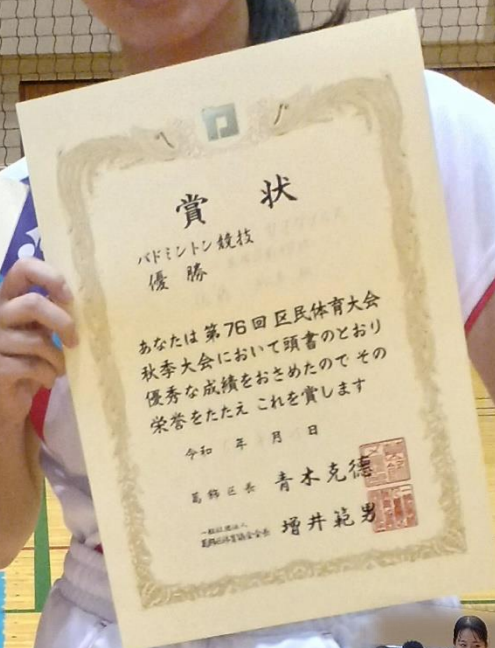 賞状
バドミントン競技
優勝
あなたは第76回区民体育大会
秋季大会において頭書のとおり
優秀な成績をおさめたので その
栄誉をたたえ これを賞します
令和 年 月 日
葛飾区長 青木克德
一般社団法人
葛飾区体育協会会長 増井範男